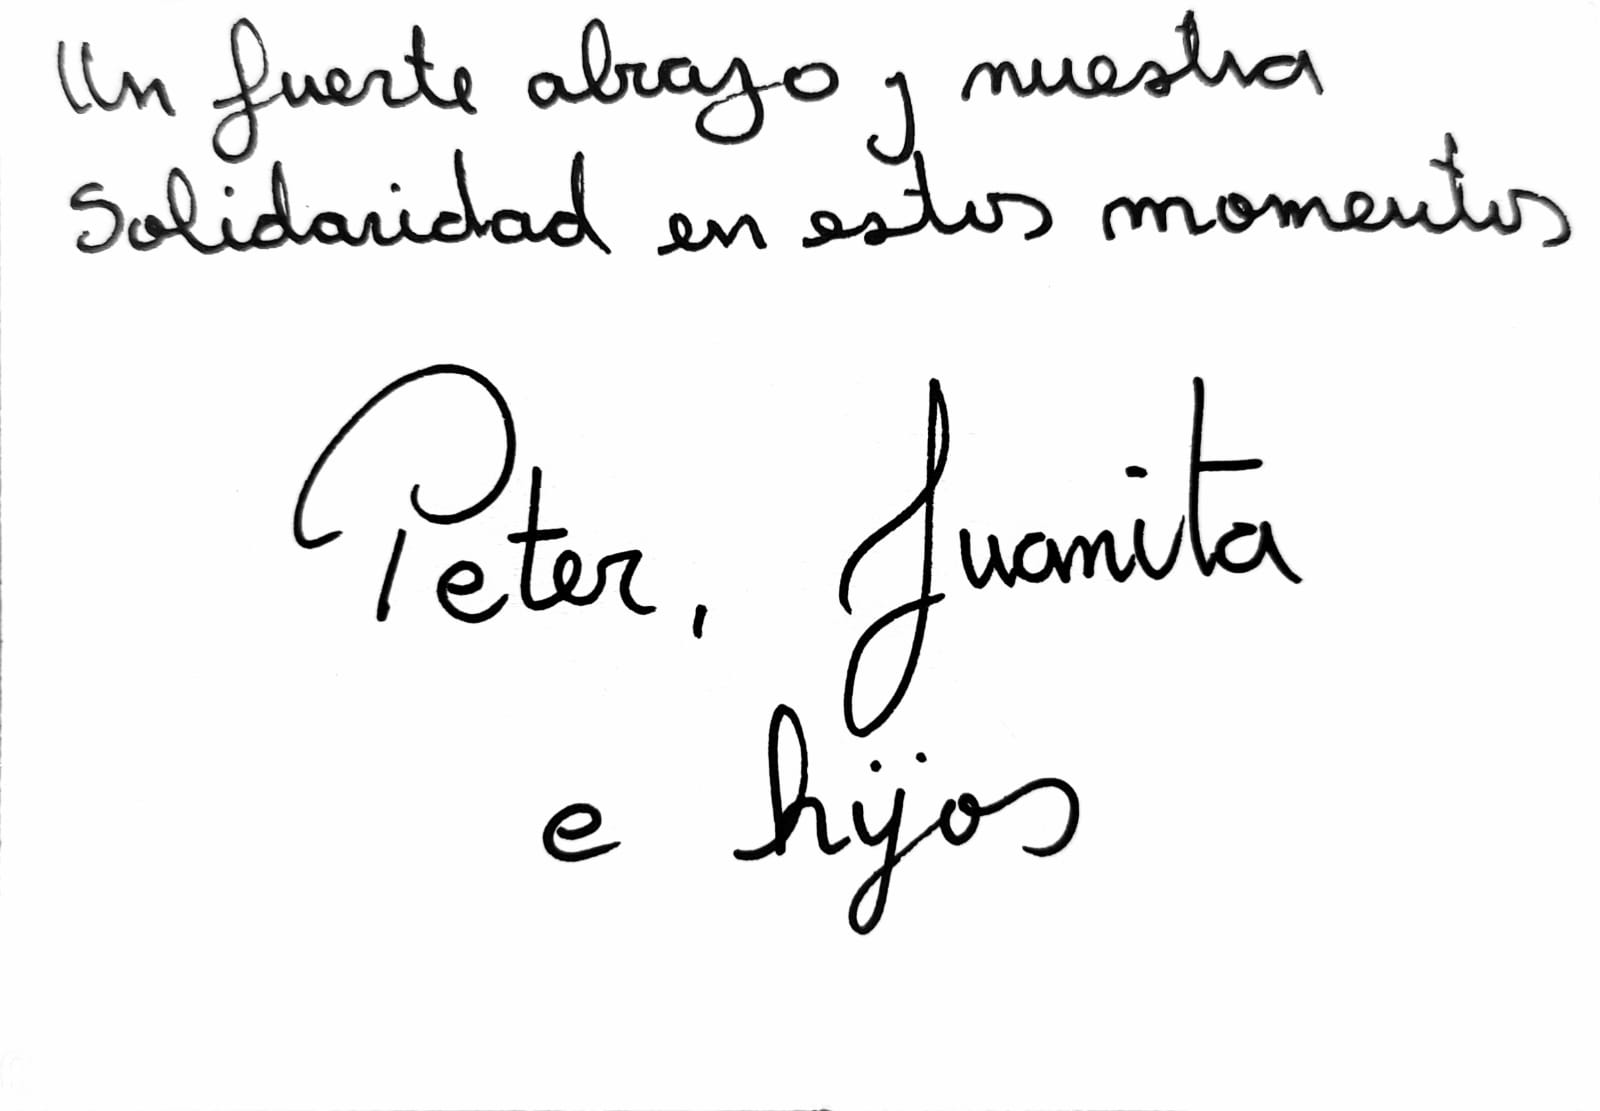 Un fuerte abrazo y nuestra
Solidaridad en estos momentos
Peter, Juanita
e hijos